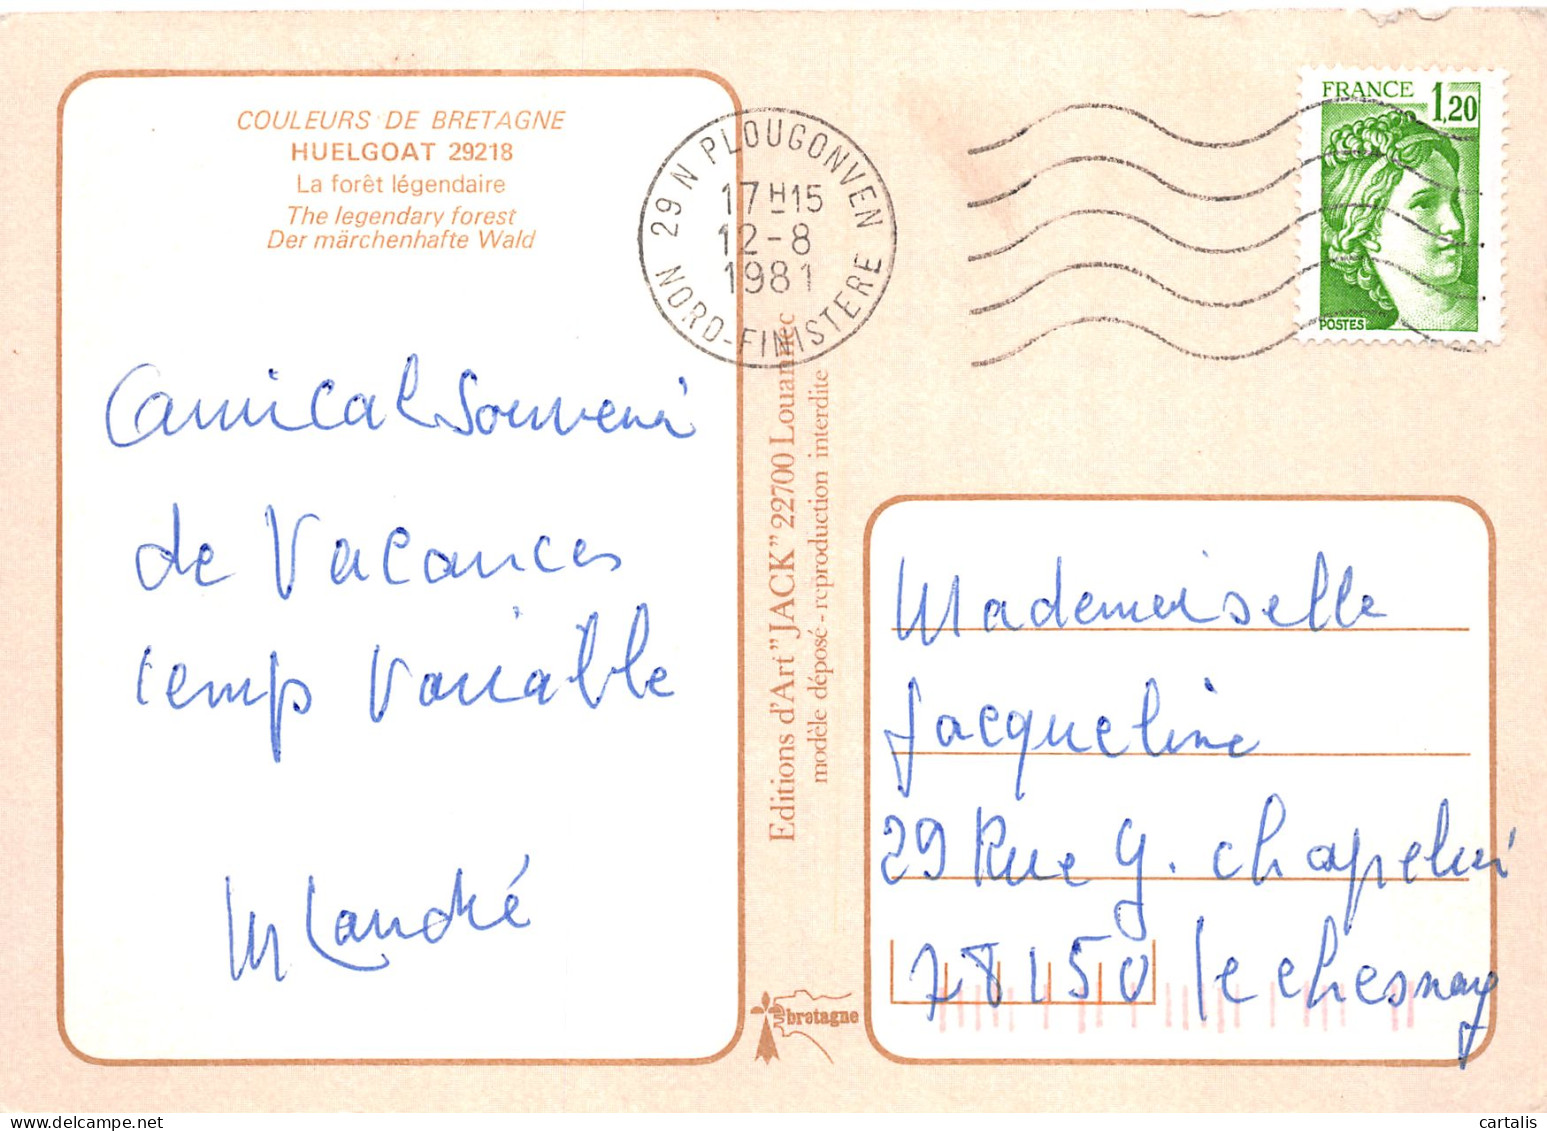 COULEURS DE BRETAGNE
HUELGOAT 29218
La forêt légendaire
The legendary forest
Der märchenhafte Wald
29 N PLOUGONVEN
17 H 15
12-8
1981
NORD-FINISTERE
FRANCE 1,20
POSTES
Amical Souvenir
de Vacances
temps Variable
Editions d'Art "JACK" 22700 Louannec
modèle déposé - reproduction interdite
Mademoiselle
Jacqueline
29 Rue G. Chapelier
78150 le Chesnay
bretagne
cartalis